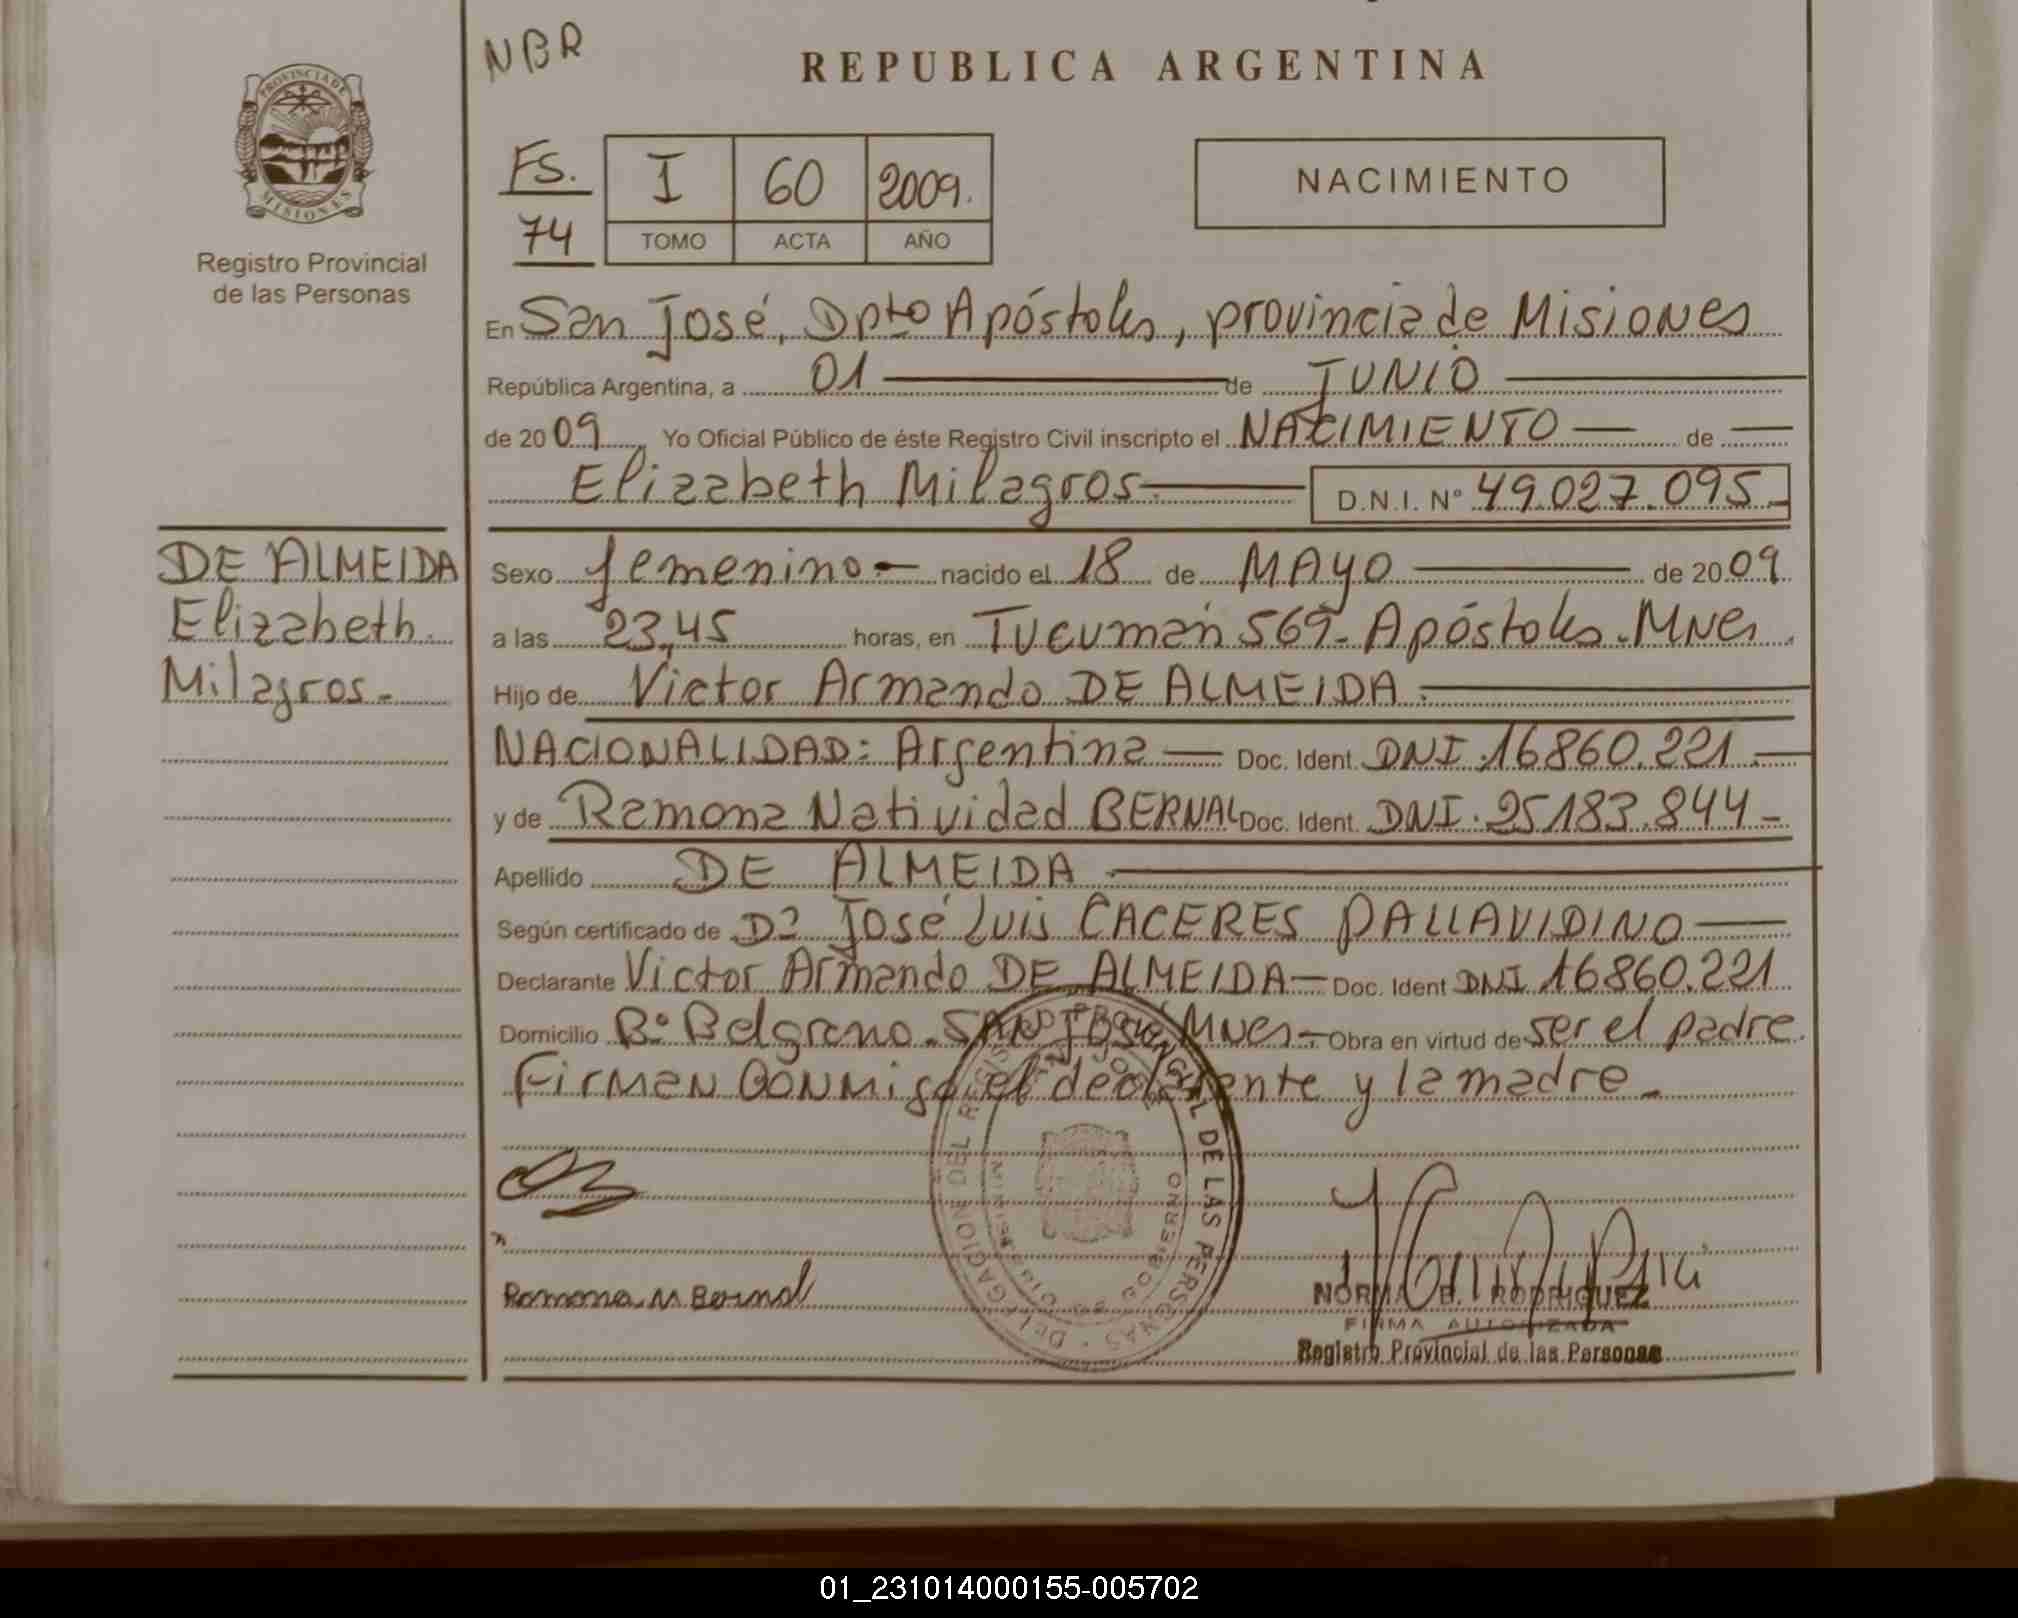 NBR
REPUBLICA ARGENTINA
PROVINCIA DE
MISIONES
Registro Provincial
de las Personas
FS.
74
I 60 2009.
TOMO ACTA AÑO
NACIMIENTO
En San José, Dpto Apóstoles, provincia de Misiones
República Argentina, a 01 de JUNIO
de 2009 Yo Oficial Público de éste Registro Civil inscripto el NACIMIENTO de
Elizabeth Milagros. D.N.I. Nº 49.027.095
DE ALMEIDA
Elizabeth
Milagros
Sexo femenino nacido el 18 de MAYO de 2009
a las 23,45 horas, en Tucumán 569 - Apóstoles. Mnes
Hijo de Victor Armando DE ALMEIDA.
NACIONALIDAD: Argentina Doc. Ident. DNI.16860.221.
y de Ramona Natividad BERNAL Doc. Ident. DNI.25183.844
Apellido DE ALMEIDA
Según certificado de Dº José Luis CACERES PALLAVIDINO
Declarante Victor Armando DE ALMEIDA Doc. Ident DNI 16860.221
Domicilio Bº Belgrano. SAN José Mnes Obra en virtud de ser el padre.
Firman conmigo el declarante y la madre
DELEGACION DEL REGISTRO PROVINCIAL DE LAS PERSONAS
SAN JOSE
MINISTERIO DE GOBIERNO
Ramona N Bernal
NORMA B. RODRIGUEZ
FIRMA AUTORIZADA
Registro Provincial de las Personas
01_231014000155-005702